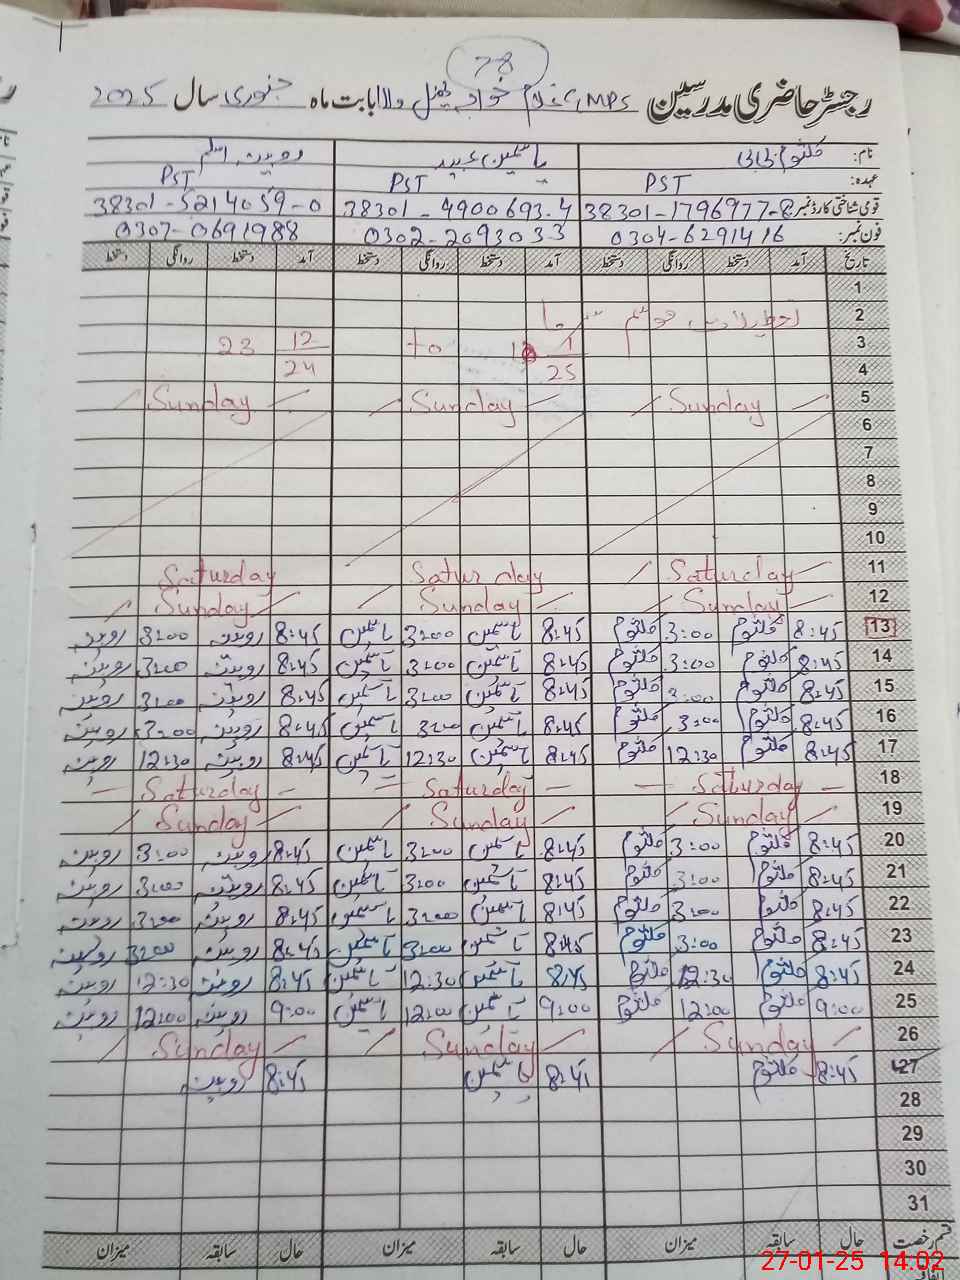 78
رجسٹر حاضری مدرسین MPS غلام خواجہ والا بابت ماہ جنوری سال 2025
نام: کلثوم بی بی یاسمین عبید روبینہ اسلم
عہدہ: PST PST PST
قومی شناختی کارڈ نمبر: 38301-1796977-8 38301-4900693-4 38301-5214059-0
فون نمبر: 0304-6291416 0302-2093033 0307-0691988
تاریخ آمد دستخط روانگی دستخط آمد دستخط روانگی دستخط آمد دستخط روانگی دستخط
1
2 تعطیلات موسم سرما
3 23 12 to 1
4 24 25
5 Sunday Sunday Sunday
6
7
8
9
10
11 Saturday Saturday Saturday
12 Sunday Sunday Sunday
13 8:45 کلثوم 3:00 کلثوم 8:45 یاسمین 3:00 یاسمین 8:45 روبینہ 3:00 روبینہ
14 8:45 کلثوم 3:00 کلثوم 8:45 یاسمین 3:00 یاسمین 8:45 روبینہ 3:00 روبینہ
15 8:45 کلثوم 3:00 کلثوم 8:45 یاسمین 3:00 یاسمین 8:45 روبینہ 3:00 روبینہ
16 8:45 کلثوم 3:00 کلثوم 8:45 یاسمین 3:00 یاسمین 8:45 روبینہ 3:00 روبینہ
17 8:45 کلثوم 12:30 کلثوم 8:45 یاسمین 12:30 یاسمین 8:45 روبینہ 12:30 روبینہ
18 Saturday Saturday Saturday
19 Sunday Sunday Sunday
20 8:45 کلثوم 3:00 کلثوم 8:45 یاسمین 3:00 یاسمین 8:45 روبینہ 3:00 روبینہ
21 8:45 کلثوم 3:00 کلثوم 8:45 یاسمین 3:00 یاسمین 8:45 روبینہ 3:00 روبینہ
22 8:45 کلثوم 3:00 کلثوم 8:45 یاسمین 3:00 یاسمین 8:45 روبینہ 3:00 روبینہ
23 8:45 کلثوم 3:00 کلثوم 8:45 یاسمین 3:00 یاسمین 8:45 روبینہ 3:00 روبینہ
24 8:45 کلثوم 12:30 کلثوم 8:45 یاسمین 12:30 یاسمین 8:45 روبینہ 12:30 روبینہ
25 9:00 کلثوم 12:00 کلثوم 9:00 یاسمین 12:00 یاسمین 9:00 روبینہ 12:00 روبینہ
26 Sunday Sunday Sunday
27 8:45 کلثوم 8:45 یاسمین 8:45 روبینہ
28
29
30
31
قسم رخصت حال سابقہ میزان حال سابقہ میزان حال سابقہ میزان
27-01-25 14:02